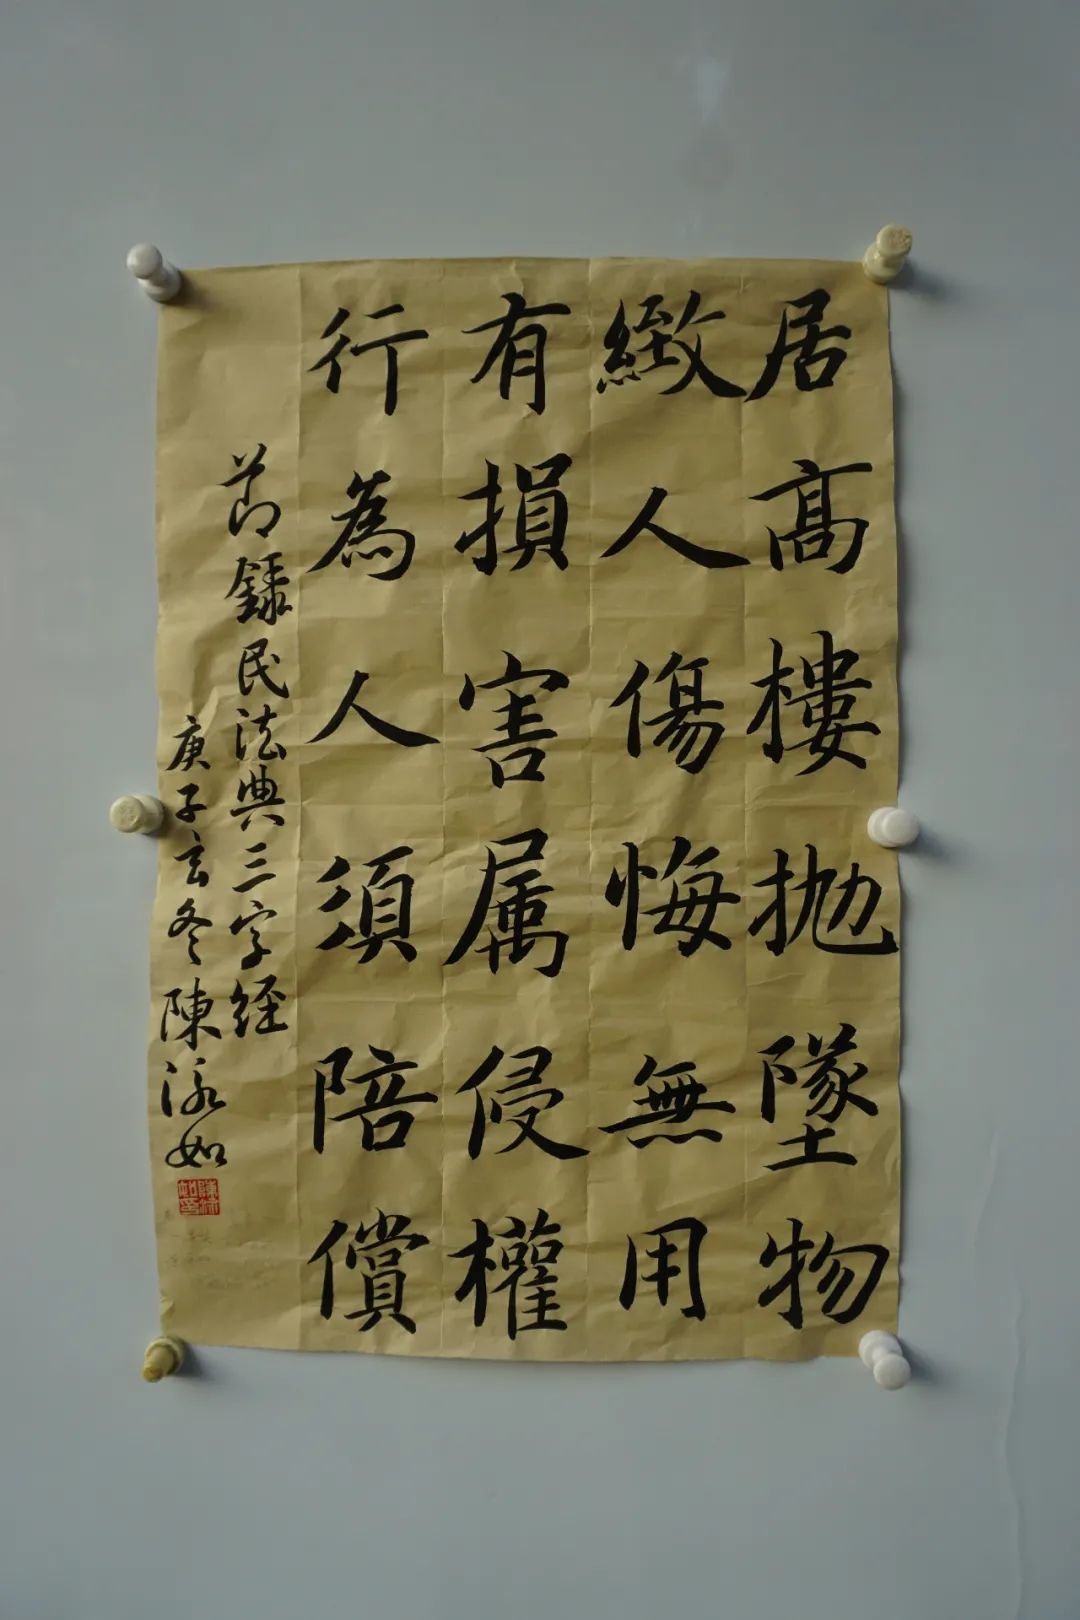 居高樓拋墜物
緻人傷悔無用
有損害属侵權
行為人須陪償
節録民法典三字経
庚子玄冬陳泳如